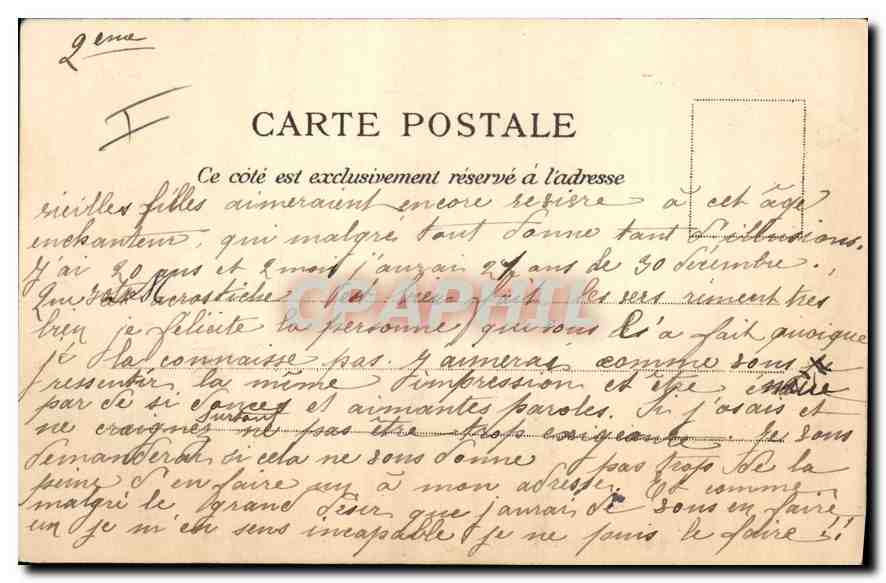 2eme
I
CARTE POSTALE
Ce côté est exclusivement réservé à l'adresse
vieilles filles aimeraient encore revivre à cet âge
enchanteur, qui malgré tout donne tant d'illusions.
J'ai 20 ans et 2 mois j'aurai 21 ans de 30 décembre.
Que acrostiche est bien fait les vers riment très
bien je félicite la personne qui vous l's a fait quoique
je la connaisse pas. J'aimerai comme vous
ressentir la même impression et être
par de si douces et aimantes paroles. Si j'osais et
ne craignez surtout ne pas être trop exigeante. Je vous
demanderai si cela ne vous donne pas trop de la
peine d'en faire un à mon adresse. Et comme
malgré le grand désir que j'aurai de vous en faire
un je m'en sens incapable je ne puis le faire !!
CPAPHIL